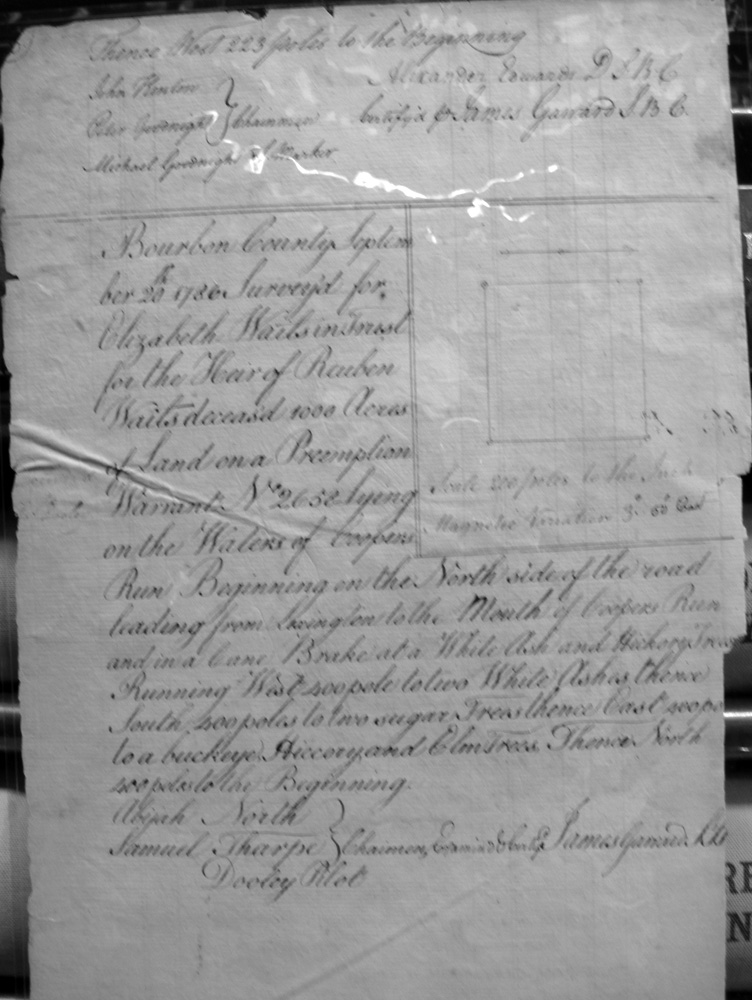 Thence West 223 poles to the Beginning
John Hinton Alexander Edwards D S B C
Peter Goodnight } Chainmen Certify'd p James Garrard S. B C.
Michael Goodnight Marker
Bourbon County Septem
ber 20th 1786 Survey'd for
Elizabeth Waits in Trust
for the Heir of Reuben
Waits deceas'd 1000 Acres
of Land on a Preemption
Warrant No 2658 lying
on the Waters of Coopers
Scale 200 poles to the Inch
Magnetic Variation 3° 50 East
Run Beginning on the North side of the road
leading from Lexington to the Mouth of Coopers Run
and in a Cane Brake at a White Ash and Hickory Trees
Running West 400 pole to two White Ashes thence
South 400 poles to two sugar Trees thence East 400 po
to a buckeye Hiccory and Elm Trees. Thence North
400 poles to the Beginning.
Abijah North
Samuel Tharpe } Chaimen, Examin'd & Certify James Garrard
Dooley Pilot
RE
N